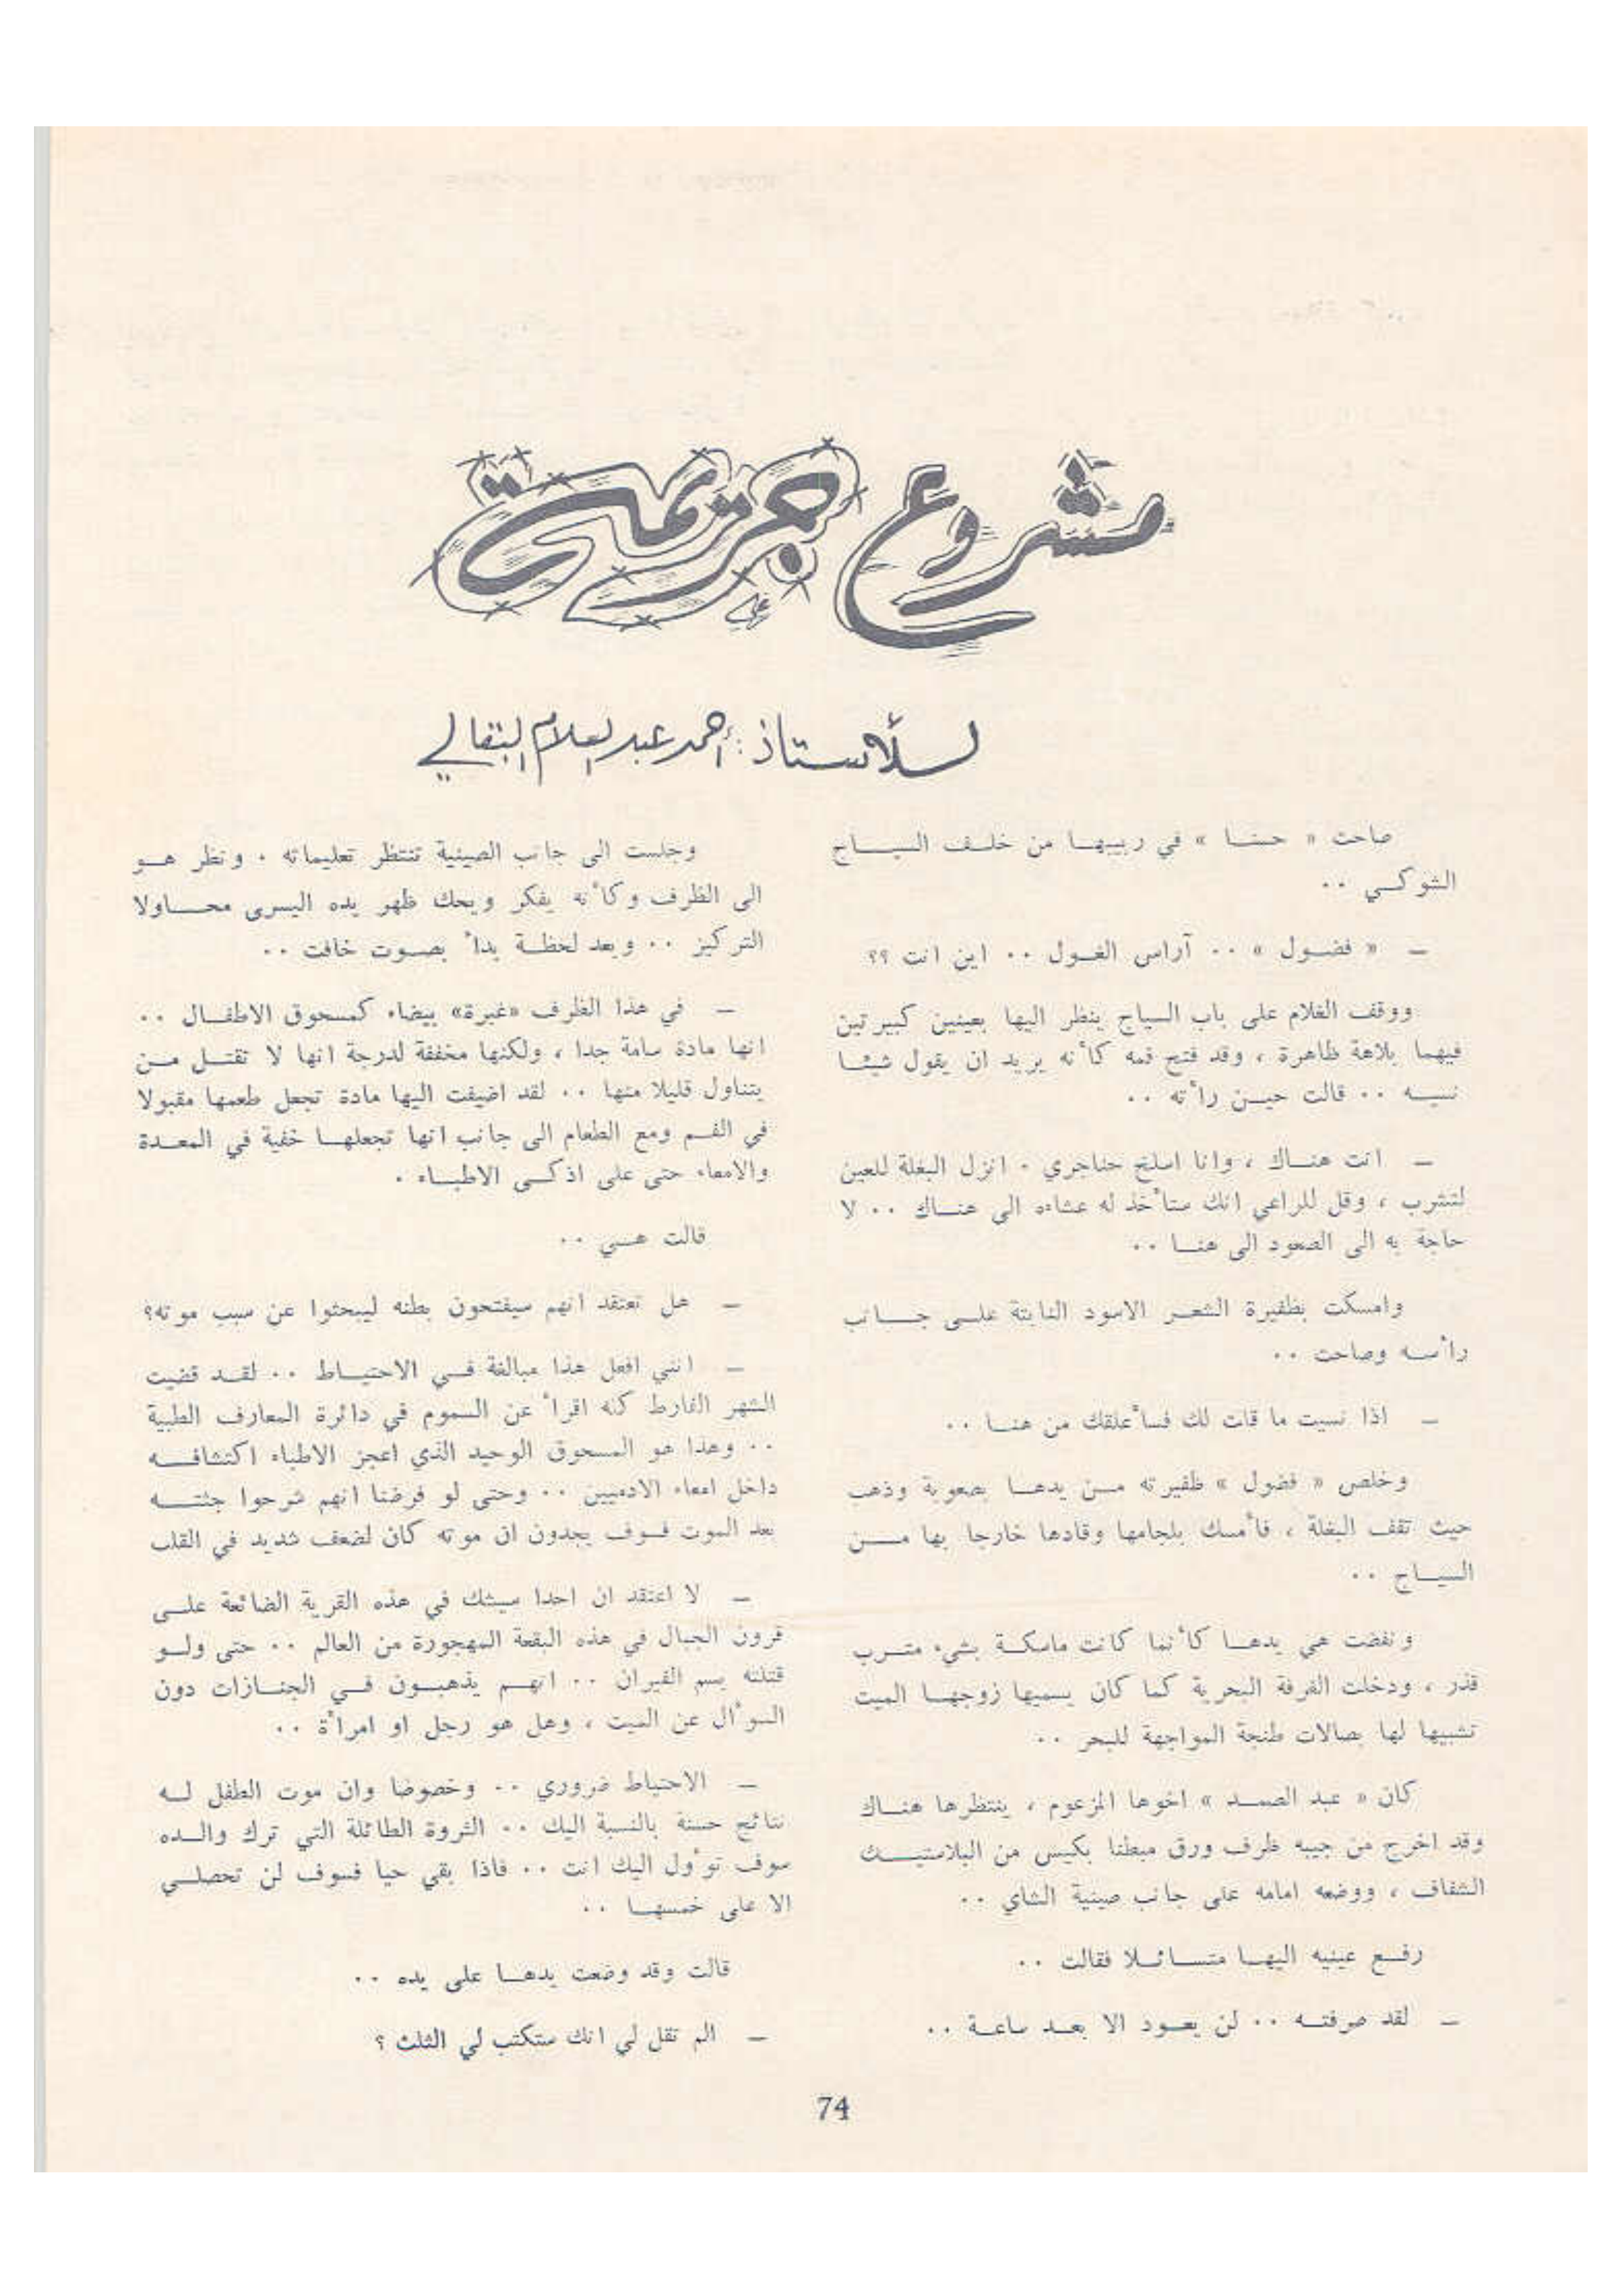 مشروع جريمة
للأستاذ : أحمد عبد السلام البقالي
صاحت « حسنا » في ربيبها من خلف السياج
الشوكي ..
— « فضول » .. آراس الغول .. اين انت ؟؟
ووقف الغلام على باب السياج ينظر اليها بعينين كبيرتين
فيهما بلاهة ظاهرة ، وقد فتح فمه كأنه يريد ان يقول شيئا
نسيه .. قالت حين رأته ..
— انت هناك ، وانا اسلخ حناجري . انزل البغلة للعين
لتشرب ، وقل للراعي انك ستأخذ له عشاءه الى هناك .. لا
حاجة به الى الصعود الى هنا ..
وامسكت بظفيرة الشعر الاسود النابتة على جانب
رأسه وصاحت ..
— اذا نسيت ما قلت لك فسأعلقك من هنا ..
وخلص « فضول » ظفيرته من يدها بصعوبة وذهب
حيث تقف البغلة ، فأمسك بلجامها وقادها خارجا بها من
السياج ..
ونفضت هي يدها كأنما كانت ماسكة بشيء مترب
قذر ، ودخلت الغرفة البحرية كما كان يسميها زوجها الميت
تشبيها لها بصالات طنجة المواجهة للبحر ..
كان « عبد الصمد » اخوها المزعوم ، ينتظرها هناك
وقد اخرج من جيبه ظرف ورق مبطنا بكيس من البلاستيك
الشفاف ، ووضعه امامه على جانب صينية الشاي ..
رفع عينيه اليها متسائلا فقالت ..
— لقد صرفته .. لن يعود الا بعد ساعة ..
وجلست الى جانب الصينية تنتظر تعليماته . ونظر هو
الى الظرف وكأنه يفكر ويحك ظهر يده اليسرى محاولا
التركيز .. وبعد لحظة بدأ بصوت خافت ..
— في هذا الظرف «غبرة» بيضاء كمسحوق الاطفال ..
انها مادة سامة جدا ، ولكنها مخففة لدرجة انها لا تقتل من
يتناول قليلا منها .. لقد اضيفت اليها مادة تجعل طعمها مقبولا
في الفم ومع الطعام الى جانب انها تجعلها خفية في المعدة
والامعاء حتى على اذكى الاطباء .
قالت هي ..
— هل تعتقد انهم سيفتحون بطنه ليبحثوا عن سبب موته؟
— انني افعل هذا مبالغة في الاحتياط .. لقد قضيت
الشهر الفارط كله اقرأ عن السموم في دائرة المعارف الطبية
.. وهذا هو المسحوق الوحيد الذي اعجز الاطباء اكتشافه
داخل امعاء الادميين .. وحتى لو فرضنا انهم شرحوا جثته
بعد الموت فسوف يجدون ان موته كان لضعف شديد في القلب
— لا اعتقد ان احدا سيشك في هذه القرية الضائعة على
قرون الجبال في هذه البقعة المهجورة من العالم .. حتى ولو
قتلته بسم الفيران .. انهم يذهبون في الجنازات دون
السؤال عن الميت ، وهل هو رجل او امرأة ..
— الاحتياط ضروري .. وخصوصا وان موت الطفل له
نتائج حسنة بالنسبة اليك .. الثروة الطائلة التي ترك والده
سوف تؤول اليك انت .. فاذا بقي حيا فسوف لن تحصلي
الا على خمسها ..
قالت وقد وضعت يدها على يده ..
— الم تقل لي انك ستكتب لي الثلث ؟
74